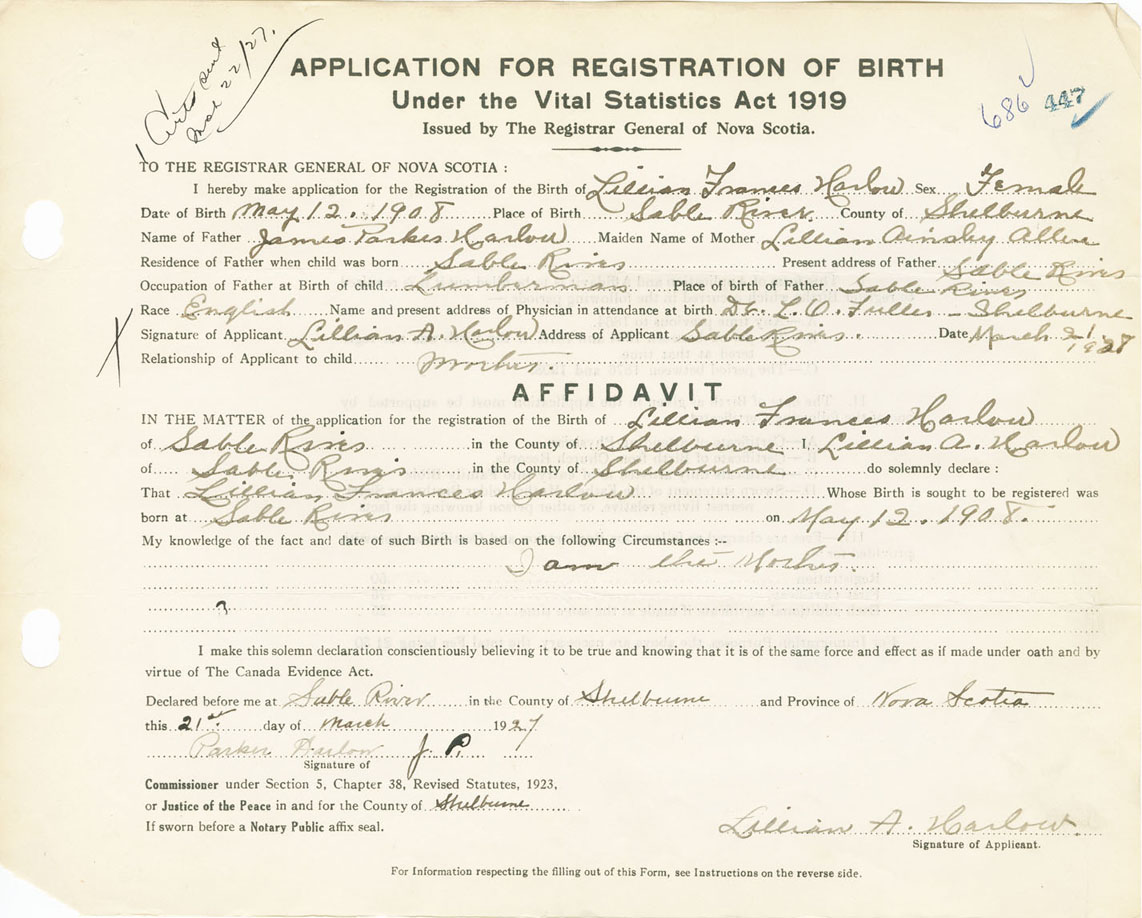 Certs sent
Mar 22/27.
APPLICATION FOR REGISTRATION OF BIRTH
Under the Vital Statistics Act 1919
Issued by The Registrar General of Nova Scotia.
686 447
TO THE REGISTRAR GENERAL OF NOVA SCOTIA :
I hereby make application for the Registration of the Birth of Lillian Frances Harlow Sex Female
Date of Birth May 12. 1908 Place of Birth Sable River County of Shelburne
Name of Father James Parker Harlow Maiden Name of Mother Lillian Ainsley Allen
Residence of Father when child was born Sable River Present address of Father Sable River
Occupation of Father at Birth of child Lumberman Place of birth of Father Sable River
Race English Name and present address of Physician in attendance at birth Dr. L. O. Fuller - Shelburne
Signature of Applicant Lillian A. Harlow Address of Applicant Sable River. Date March 21 1927
Relationship of Applicant to child Mother.
AFFIDAVIT
IN THE MATTER of the application for the registration of the Birth of Lillian Frances Harlow
of Sable River in the County of Shelburne I, Lillian A. Harlow
of Sable River in the County of Shelburne do solemnly declare :
That Lillian Frances Harlow Whose Birth is sought to be registered was
born at Sable River on May 12. 1908.
My knowledge of the fact and date of such Birth is based on the following Circumstances :--
I am the Mother.
I make this solemn declaration conscientiously believing it to be true and knowing that it is of the same force and effect as if made under oath and by
virtue of The Canada Evidence Act.
Declared before me at Sable River in the County of Shelburne and Province of Nova Scotia
this 21st day of March 1927
Parker Harlow J. P.
Signature of
Commissioner under Section 5, Chapter 38, Revised Statutes, 1923,
or Justice of the Peace in and for the County of Shelburne
If sworn before a Notary Public affix seal.
Lillian A. Harlow.
Signature of Applicant.
For Information respecting the filling out of this Form, see Instructions on the reverse side.